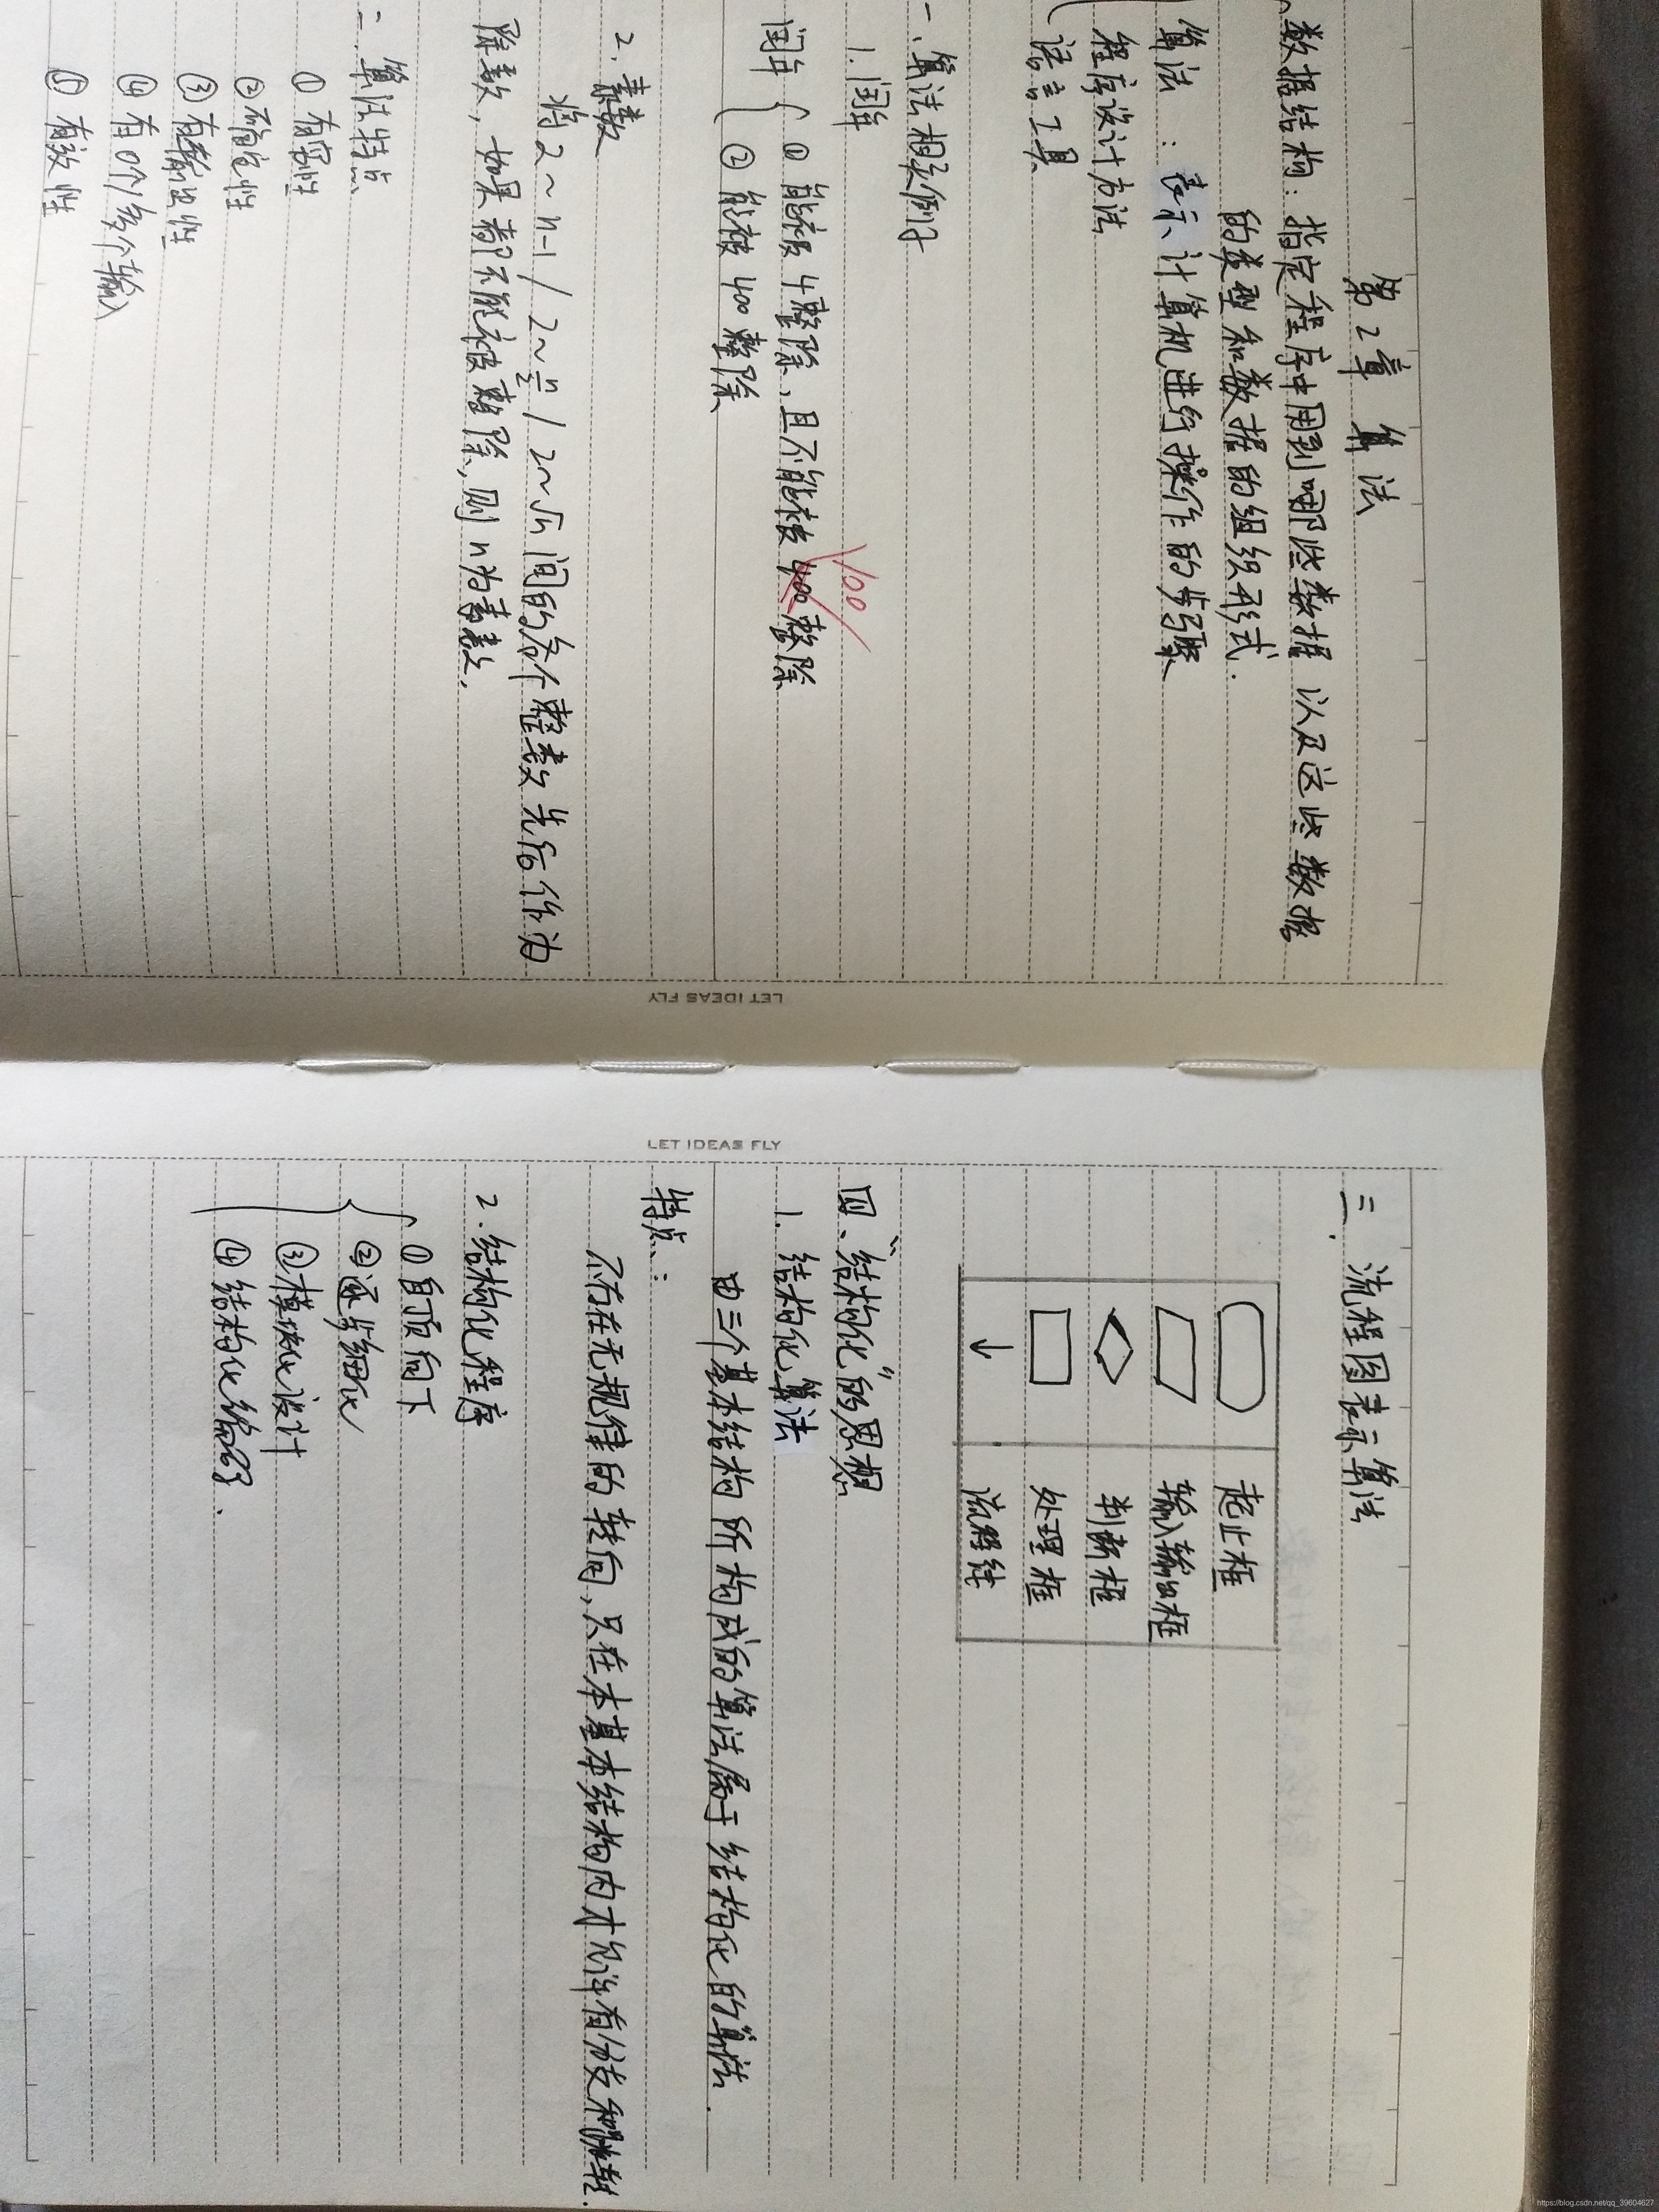 第2章 算法
数据结构：指定程序中用到哪些数据 以及这些数据
的类型和数据的组织形式.
算法：表示计算机进行操作的步骤
程序设计方法
语言工具
一、算法相关例子
1. 闰年
100
闰年 ① 能被4整除、且不能被400整除
② 能被400整除
2. 素数
将 2～n-1 / 2～n/2 / 2～√n 间的各个整数先后作为
除数，如果都不能被整除，则n为素数.
二、算法特点
① 有穷性
② 确定性
③ 有输出性
④ 有0个/多个输入
⑤ 有效性
LET IDEAS FLY
LET IDEAS FLY
三. 流程图表示算法
起止框
输入输出框
判断框
处理框
↓ 流程线
四、“结构化”的思想
1. 结构化算法
由三个基本结构所构成的算法属于结构化的算法.
特点：
不存在无规律的转向，只在本基本结构内才允许有分支和跳转.
2. 结构化程序
① 自顶向下
② 逐步细化
③ 模块化设计
④ 结构化编码.
https://blog.csdn.net/qq_39604627